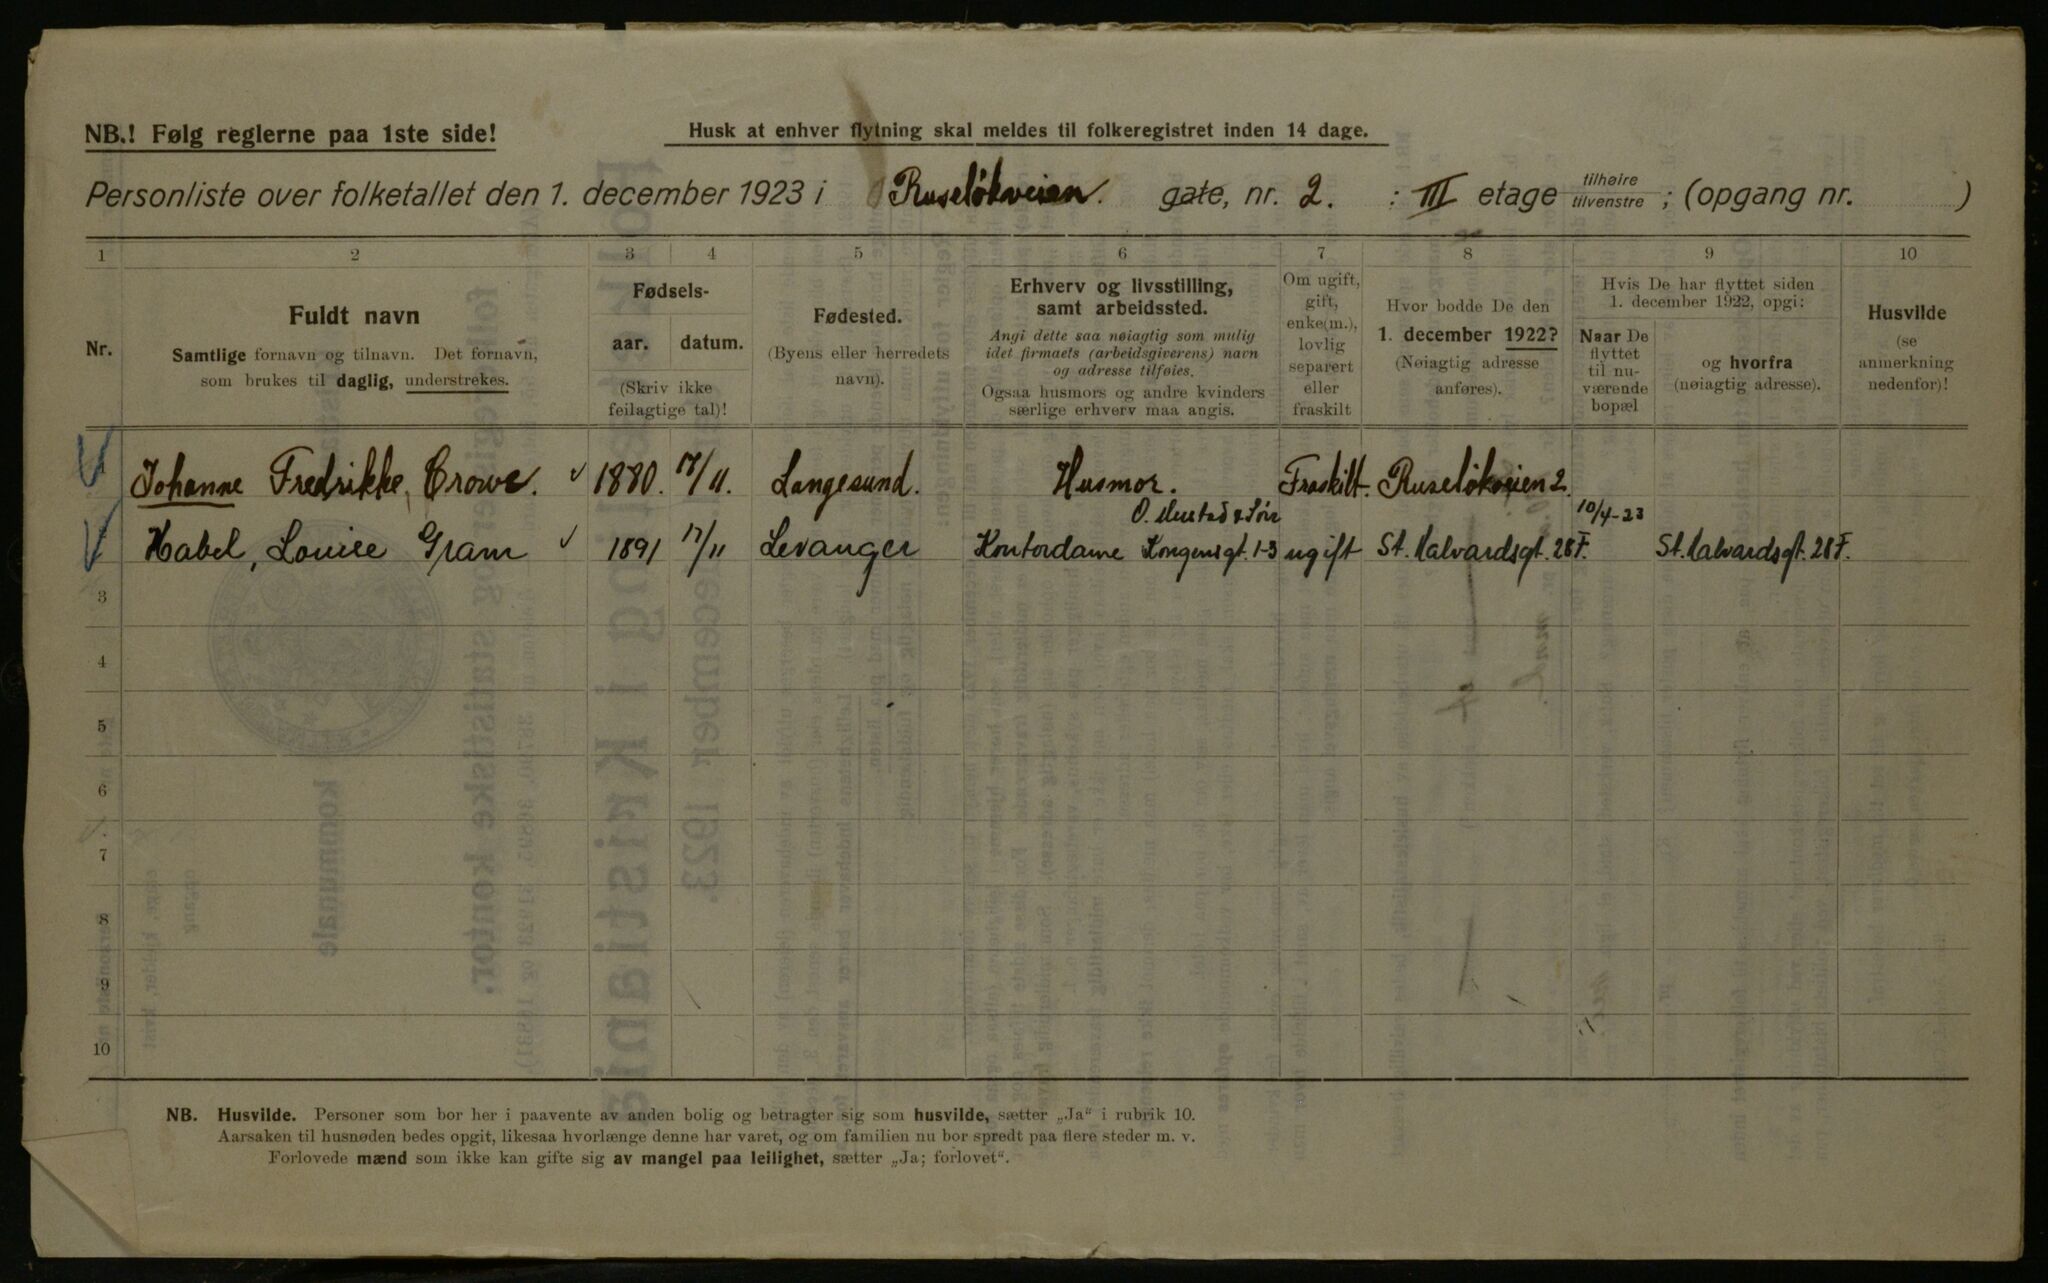 NB.! Følg reglerne paa 1ste side!
Husk at enhver flytning skal meldes til folkeregistret inden 14 dage.
Personliste over folketallet den 1. december 1923 i Ruseløkveien. gate, nr. 2. : III etage tilhøire tilvenstre ; (opgang nr. )
1 2 3 4 5 6 7 8 9 10
Nr.
Fuldt navn
Samtlige fornavn og tilnavn. Det fornavn,
som brukes til daglig, understrekes.
Fødsels-
aar. datum.
(Skriv ikke
feilagtige tal)!
Fødested.
(Byens eller herredets
navn).
Erhverv og livsstilling,
samt arbeidssted.
Angi dette saa nøiagtig som mulig
idet firmaets (arbeidsgiverens) navn
og adresse tilføies.
Ogsaa husmors og andre kvinders
særlige erhverv maa angis.
Om ugift,
gift,
enke(m.),
lovlig
separert
eller
fraskilt
Hvor bodde De den
1. december 1922?
(Nøiagtig adresse
anføres).
Hvis De har flyttet siden
1. december 1922, opgi:
Naar De
flyttet
til nu-
værende
bopæl
og hvorfra
(nøiagtig adresse).
Husvilde
(se
anmerkning
nedenfor)!
Johanne Fredrikke, Crowe. 1880. 17/11. Langesund. Husmor. Fraskilt. Ruseløkveien 2.
O. Mustad & Søn 10/4-23
Habel, Louise Gram 1891 17/11 Levanger Kontordame Kongensgt. 1-3 ugift St. Halvardsgt. 28 F. St. Halvardsgt. 28 F.
3
4
5
6
7
8
9
10
NB. Husvilde. Personer som bor her i paavente av anden bolig og betragter sig som husvilde, sætter „Ja“ i rubrik 10.
Aarsaken til husnøden bedes opgit, likesaa hvorlænge denne har varet, og om familien nu bor spredt paa flere steder m. v.
Forlovede mænd som ikke kan gifte sig av mangel paa leilighet, sætter „Ja; forlovet“.